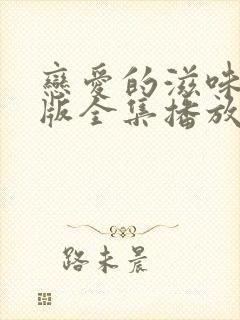 戀愛的滋味
版全集播放
路未晨